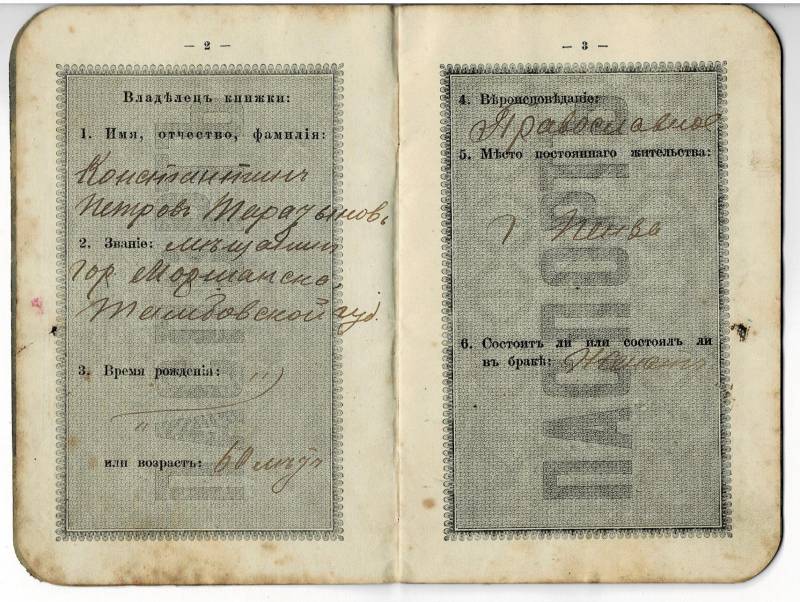 — 2 —
Владѣлецъ книжки:
1. Имя, отчество, фамилія:
Константинъ
Петровъ
2. Званіе: мѣщанинъ
гор. Моршанска,
Тамбовской губ.
3. Время рожденія:
или возрастъ: 60 лѣтъ
— 3 —
4. Вѣроисповѣданіе:
Православное
5. Мѣсто постояннаго жительства:
г. Пенза
6. Состоитъ ли или состоялъ ли
въ бракѣ: Женатъ
ПАСПОРТЪ